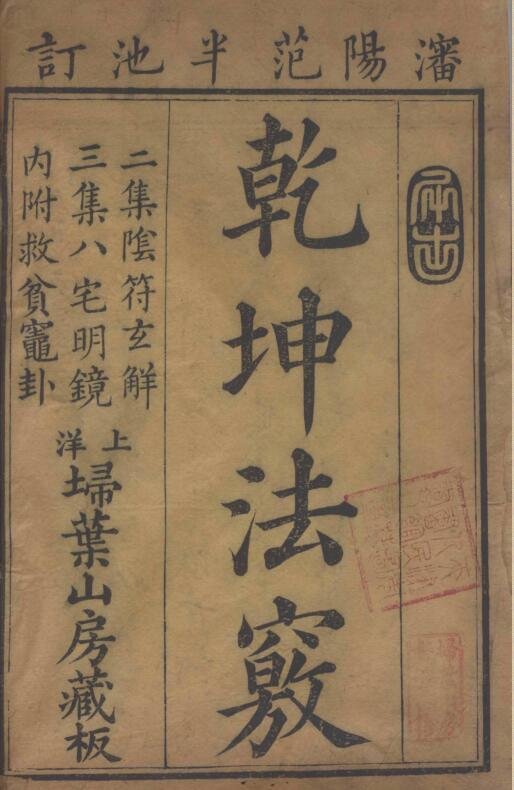 瀋陽范半池訂
乾坤法竅
二集陰符玄解
三集八宅明鏡
内附救貧竈卦
上洋
埽葉山房藏板